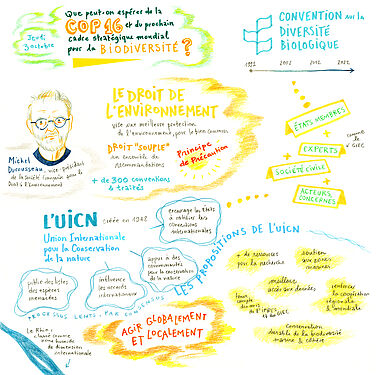 Jeudi
3 octobre
Que peut-on espérer de la
COP 16 et du prochain
cadre stratégique mondial
pour la BIODIVERSITÉ ?
CONVENTION sur la
DIVERSITÉ
BIOLOGIQUE
1992
2002
2012
2022
LE DROIT DE
L'ENVIRONNEMENT
vise une meilleure protection
de l'environnement, pour le bien commun
DROIT "SOUPLE"
un ensemble de
recommandations
Principe
de Précaution
+ de 300 conventions
& traités
Michel
vice-président
de la Société française pour le
Droit de l'Environnement
ÉTATS MEMBRES
+
EXPERTS
+
SOCIÉTÉ CIVILE
+
ACTEURS
CONCERNÉS
comme
le GIEC
L'UICN créée en 1948
Union Internationale
pour la Conservation
de la nature
encourage les États
à ratifier les
conventions
internationales
appui à des
communautés
pour la conservation
de la nature
influence
les accords
internationaux
publie des listes
des espèces
menacées
PROCESSUS LENTS, PAR CONSENSUS
LES PROPOSITIONS DE L'UICN
+ de ressources
pour la recherche
soutien
aux zones
marines
meilleur
accès aux données
renforcer
la coopération
régionale &
mondiale
tenir
compte
des avis
de l'IPBES
et du GIEC
Conservation
durable de la biodiversité
marine & côtière
AGIR GLOBALEMENT
ET LOCALEMENT
Le Rhin :
classé comme
zone humide
de dimension
internationale